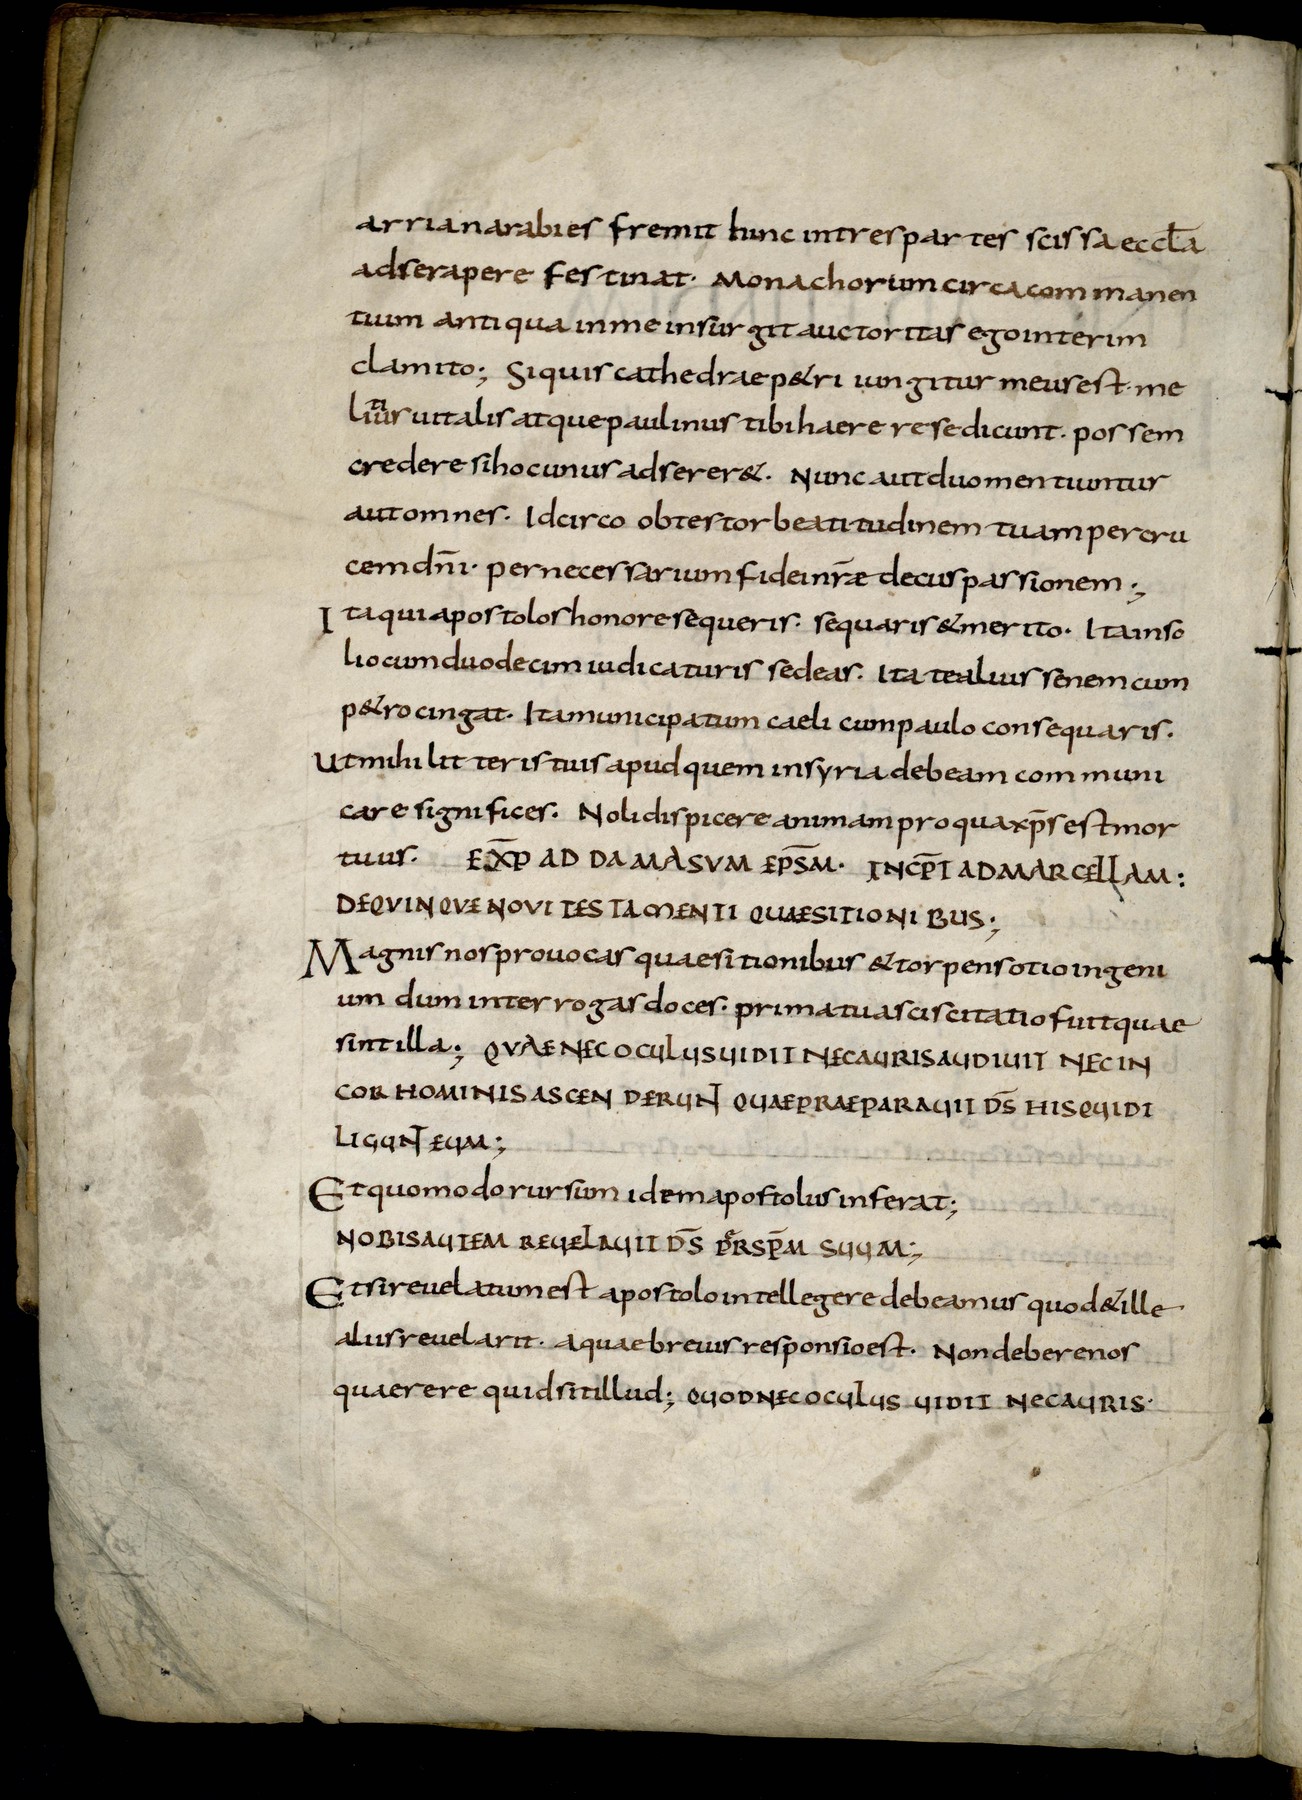 arriana rabies fremit hinc intres partes scissa eccl̄a
adse rapere festinat. Monachorum circa commanen
tium antiqua in me insurgit auctoritas ego interim
clamito; Siquis cathedrae p&ri iungitur meus est. me
litius uitalis atque paulinus tibi haerere se dicunt. possem
credere si hoc unus adserer&. Nunc aut duo mentiuntur
aut omnes. Idcirco obtestor beatitudinem tuam per cru
cem dn̄i. per necessarium fidei nr̄ae decus passionem;
Ita qui apostolos honore sequeris. sequaris & merito. Ita inso
lio cum duodecim iudicaturis sedeas. Ita te alius senem cum
p&ro cingat. Ita municipatum caeli cum paulo consequaris.
Ut mihi litteris tuis apud quem in syria debeam communi
care significes. Noli dispicere animam pro qua xp̄s est mor
tuus. EXP̄ AD DAMASUM EPS̄M. INCP̄T AD MARCELLAM:
DE QUINQUE NOVI TESTAMENTI QUAESITIONIBUS;
Magnis nos prouocas quaesitionibus & torpens otio ingeni
um dum interrogas doces. prima tua sciscitatio fuit quae
sint illa; QUAE NEC OCULUS UIDIT NEC AURIS AUDIUIT NEC IN
COR HOMINIS ASCENDERUNT QUAE PRAEPARAUIT DS̄ HIS QUI DI
LIGUNT EUM;
Et quomodo rursum idem apostolus inferat;
NOBIS AUTEM REUELAUIT DS̄ PER SP̄M SUUM;
Et si reuelatum est apostolo intellegere debeamus quod & ille
aliis reuelarit. Aquae breuis responsio est. Non debere nos
quaerere quid sit illud; QUOD NEC OCULUS UIDIT NEC AURIS.